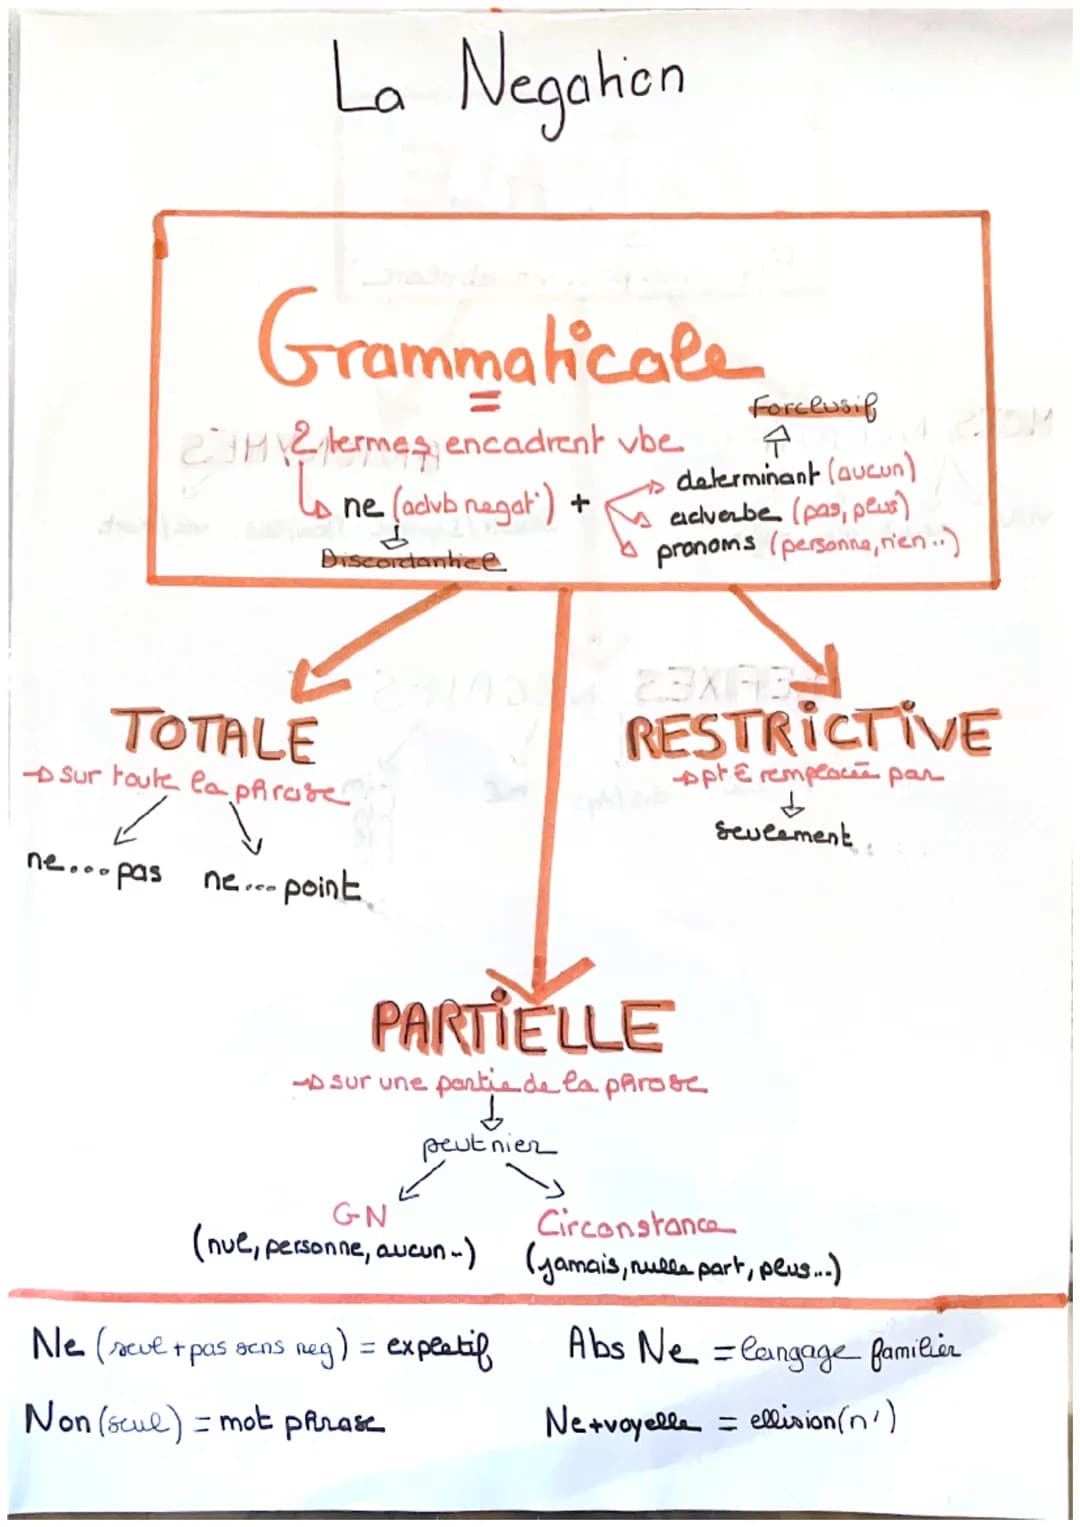 La Negation
Grammaticale
=
Forclusif
2 termes encadrent vbe
determinant (aucun)
ne (advb negat°) +
adverbe (pas, plus)
pronoms (personne, rien..)
Discordantiel
TOTALE
RESTRICTIVE
sur toute la phrase
pt ê remplacée par
seulement
ne....pas
ne....point
PARTIELLE
sur une partie de la phrase
peut nier
GN
Circonstance
(nul, personne, aucun..)
(jamais, nulle part, plus...)
Ne (seul + pas sens neg) = expletif
Abs Ne = langage familier
Non (seul) = mot phrase
Ne+voyelle = ellision (n')